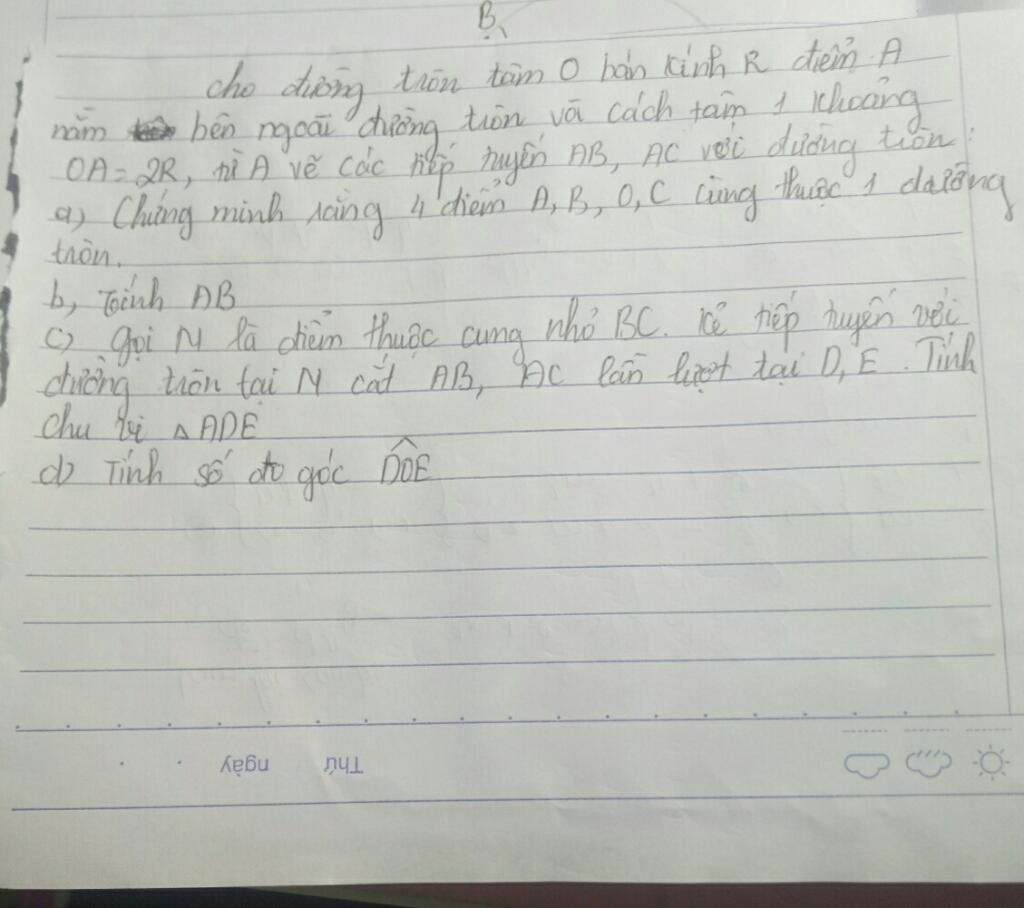 B
cho đường tròn tâm O bán kính R điểm A
nằm bên ngoài đường tròn và cách tâm 1 khoảng
OA = 2R, từ A vẽ các tiếp tuyến AB, AC với đường tròn.
a) Chứng minh rằng 4 điểm A, B, O, C cùng thuộc 1 đường
tròn.
b, Tính AB
c) gọi N là điểm thuộc cung nhỏ BC. Kẻ tiếp tuyến với
đường tròn tại N cắt AB, AC lần lượt tại D, E. Tính
chu vi △ADE
d) Tính số đo góc DÔE
Thứ ngày